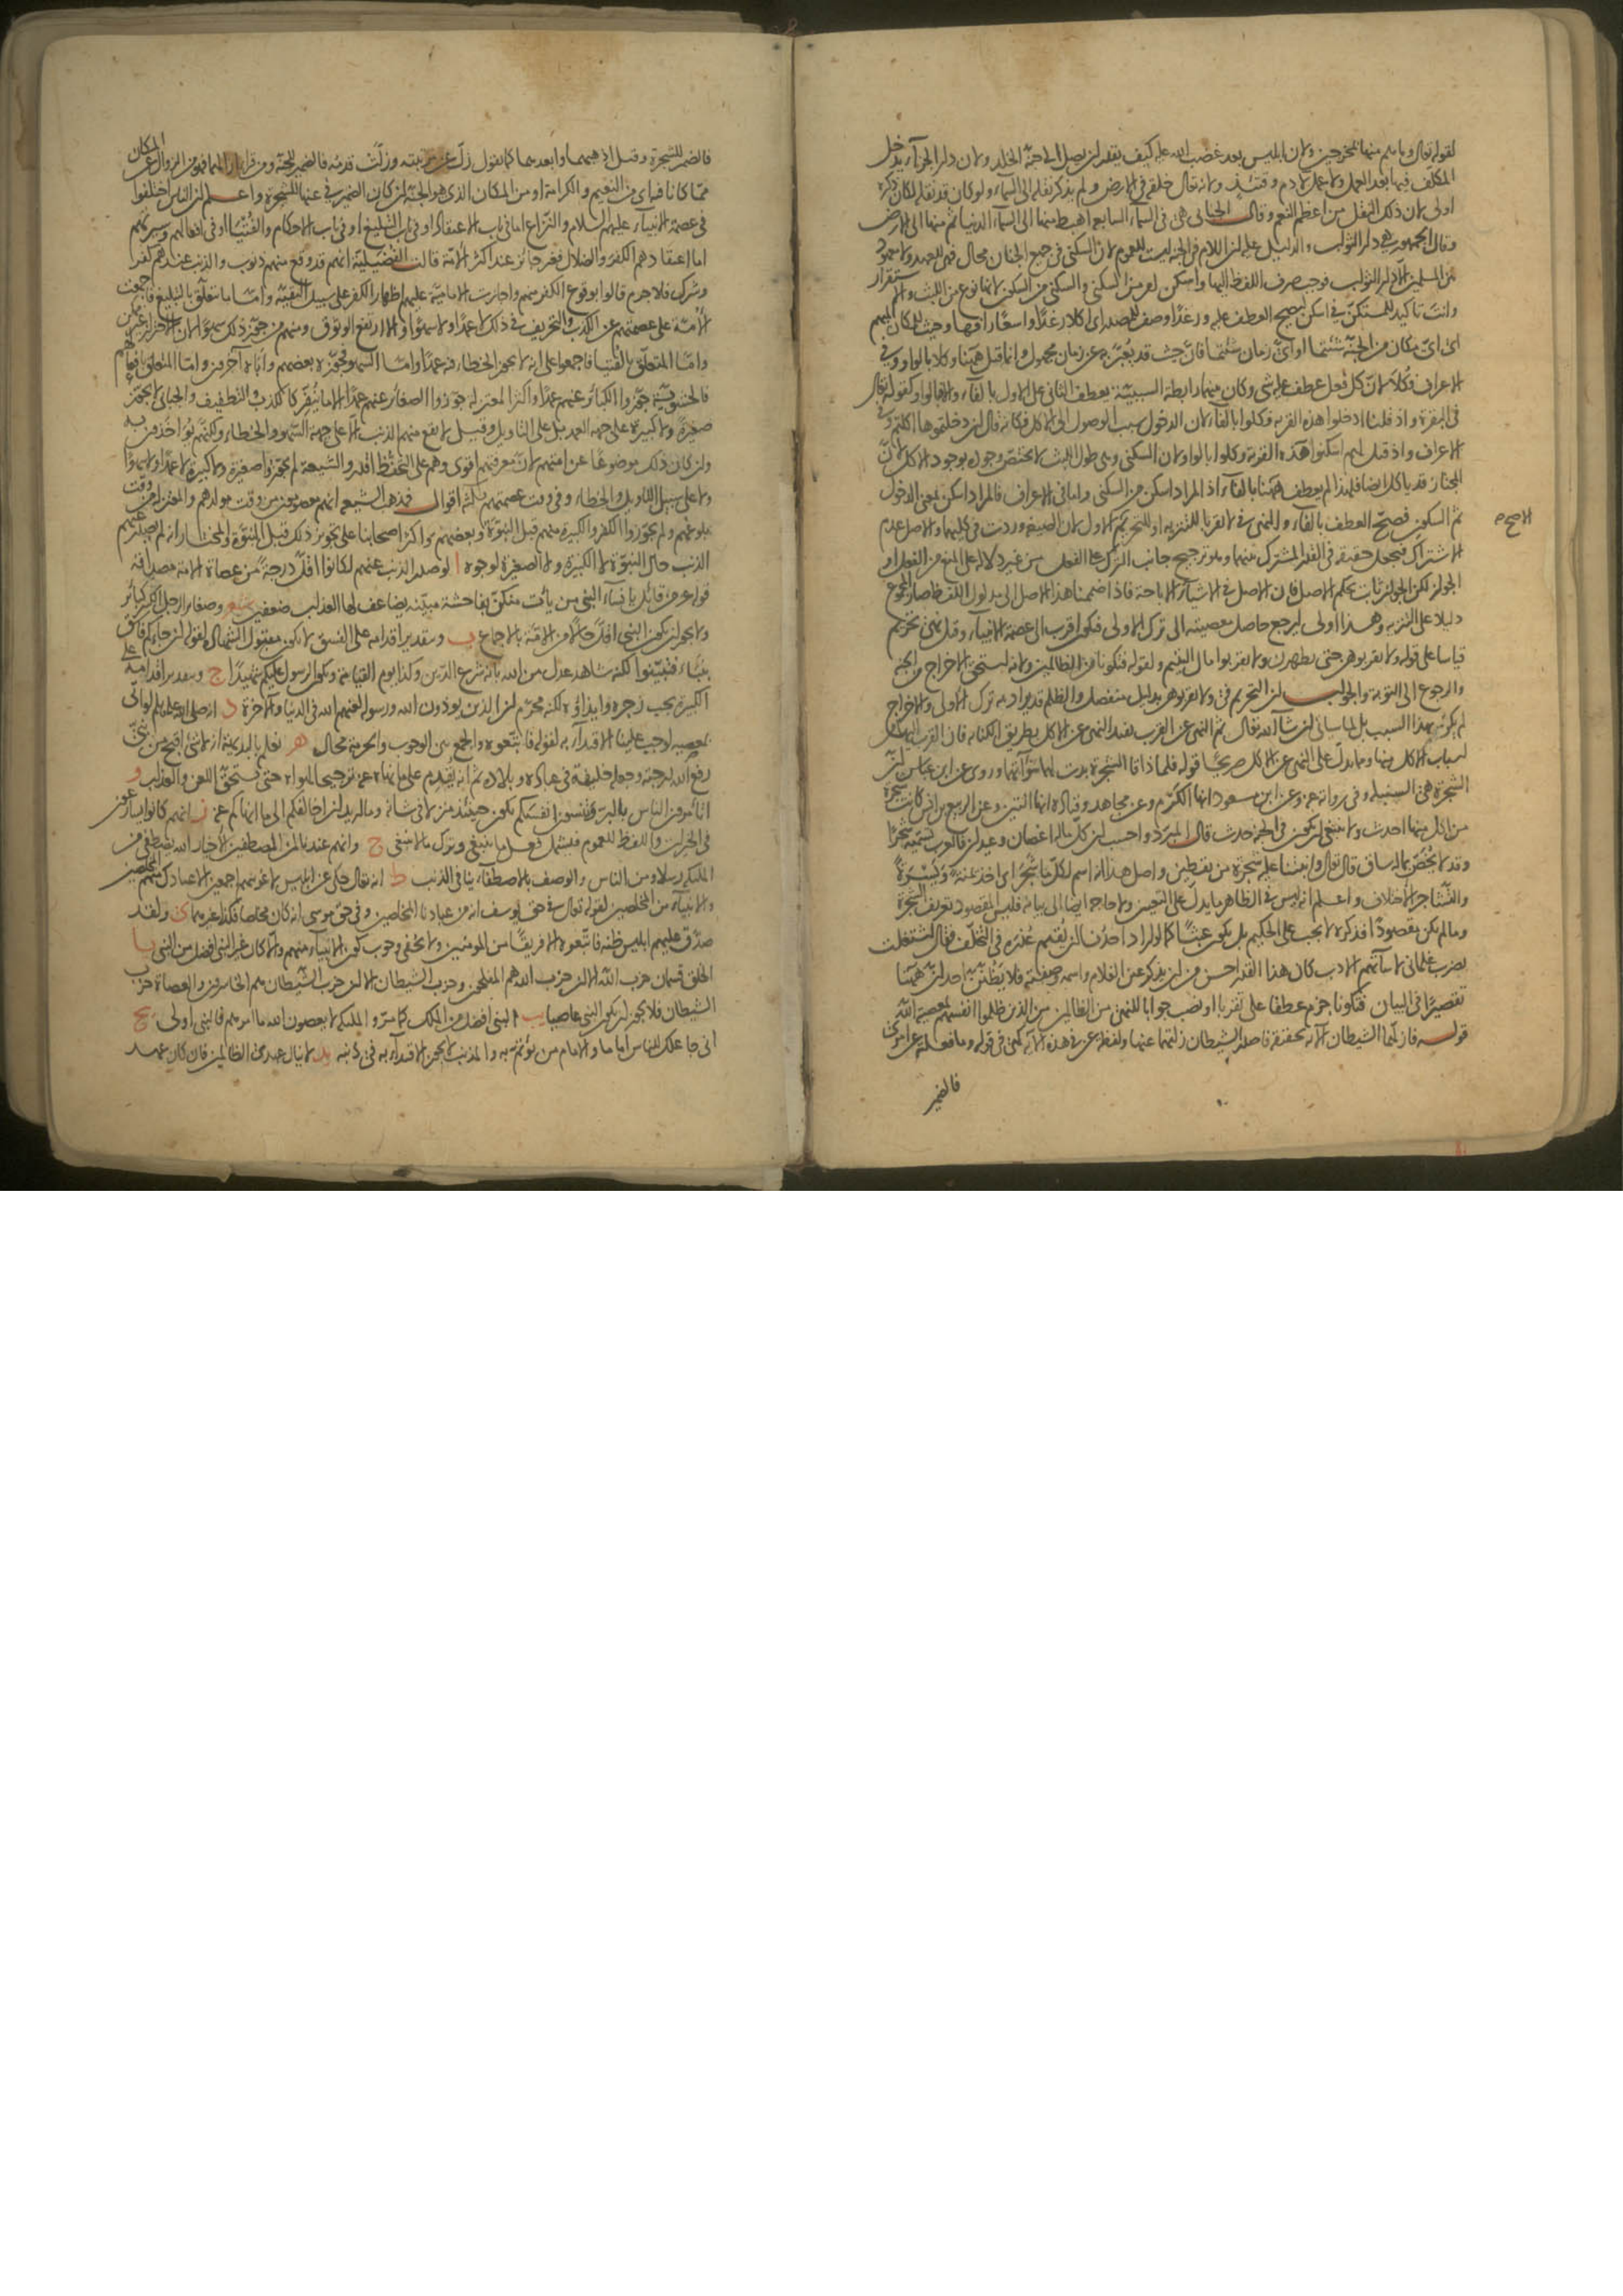 لقوله تعالى وما هم منها بمخرجين ولان ابليس بعد غضب الله عليه كيف يقدر ان يصل الى جنة الخلد ولان دار الجزاء يدخل
المكلف فيها بعد العمل ولا عمل لآدم وقتئذ ولانه تعالى خلقه في الارض ولم يذكر نقله الى السماء ولو كان قد نقله لكان ذكره
اولى لان ذلك النقل من اعظم النعم وقال الجبائي هي في السماء السابعة اهبط منها الى السماء الدنيا ثم منها الى الارض
وقال الجمهور هي دار الثواب والدليل عليه ان اللام في الجنة ليست للعموم لان السكنى في جميع الجنان محال فهي للعهد ولا معهود
بين المسلمين الا دار الثواب فوجب صرف اللفظ اليها واسكن امر من السكنى والسكنى من السكون لانها نوع من اللبث والاستقرار
وانت تاكيد للمستكن في اسكن ليصح العطف عليه ورغدا وصف للمصدر اي اكلا رغدا واسعا رافها وحيث للمكان المبهم
اي اي مكان من الجنة شئتما او اي زمان شئتما فان حيث قد يعبر به عن زمان مجهول وانما قيل ههنا وكلا بالواو وفي
الاعراف فكلا لان كل فعل عطف عليه شيء وكان بينهما رابطة السببية يعطف الثاني على الاول بالفاء والا فبالواو كقوله تعالى
في البقرة واذ قلنا ادخلوا هذه القرية فكلوا بالفاء لان الدخول سبب الوصول الى الاكل فكانه قال ان دخلتموها اكلتم وفي
الاعراف واذ قيل لهم اسكنوا هذه القرية وكلوا بالواو لان السكنى وهي طول اللبث لا يختص وجوده بوجود الاكل لان
المجتاز قد ياكل ايضا فلهذا لم يعطف ههنا بالفاء اذ المراد اسكن من السكنى واما في الاعراف فالمراد اسكن بمعنى ادخل
ثم اسكن فصح العطف بالفاء والنهي في لا تقربا للتنزيه او للتحريم الاصح الاول لان الصيغة وردت في كليهما والاصل عدم
الاشتراك فتجعل حقيقة في القدر المشترك بينهما وهو ترجيح جانب الترك على الفعل من غير دلالة على المنع من الفعل او
الجواز لكن الجواز ثابت بحكم الاصل فان الاصل في الاشياء الاباحة فاذا ضممنا هذا الاصل الى مدلول اللفظ صار المجموع
دليلا على التنزيه وهذا اولى ليرجع حاصل معصيته الى ترك الاولى فيكون اقرب الى عصمة الانبياء وقيل نهي تحريم
قياسا على قوله ولا تقربوهن حتى يطهرن ولا تقربوا مال اليتيم ولقوله فتكونا من الظالمين ولانه استحق الاخراج من الجنة
والرجوع الى التوبة والجواب ان التحريم في ولا تقربوهن بدليل منفصل والظلم قد يراد به ترك الاولى والاخراج
لم يكن لهذا السبب بل لما سياتي ان شاء الله تعالى ثم النهي عن القرب يفيد النهي عن الاكل بطريق الكناية فان القرب
اسباب الاكل منها ومما يدل على النهي عن الاكل صريحا قوله فلما ذاقا الشجرة بدت لهما سوآتهما وروي عن ابن عباس ان
الشجرة هي السنبلة وفي رواية عنه وعن ابن مسعود انها الكرم وعن مجاهد وقتادة انها التين وعن الربيع بن انس كانت شجرة
من اكل منها احدث ولا ينبغي ان يكون في الجنة حدث قال المبرد واحسب ان كل ما له اغصان وعيدان فالعرب تسميه شجرا
وقد لا يختص بما له ساق قال تعالى وانبتنا عليه شجرة من يقطين واصل هذا انه اسم لكل ما شجر اي اخذ يمنة ويسرة
والتشاجر الاختلاف واعلم انه ليس في الظاهر ما يدل على التعيين ولا حاجة ايضا الى بيانه فليس المقصود تعريف الشجرة
وما لم يكن مقصودا فذكره لا يجب على الحكيم بل يكون عبثا كما لو اراد احدنا ان يقيم عذره في التخلف فقال اشتغلت
بضرب غلماني لاساءتهم الادب كان هذا القدر احسن من ان يذكر عين الغلام واسمه وصفته فلا يظنن احد ان ههنا
تقصيرا في البيان فتكونا جزم عطفا على تقربا او نصب جوابا للنهي من الظالمين من الذين ظلموا انفسهم بمعصية الله
قوله فازلهما الشيطان الآية تحقيقه فاصدر الشيطان زلتهما عنها ولفظة عن في هذه الآية كهي في قوله وما فعلته عن امري
فالضمير
الاصح
فالضمير للشجرة وقيل اذهبهما وابعدهما كما يقول زل عن مرتبته وزلت قدمه فالضمير للجنة
مما كانا فيه اي من النعيم والكرامة او من المكان الذي هو الجنة ان كان الضمير في عنها للشجرة واعلم ان الناس اختلفوا
في عصمة الانبياء عليهم السلام والنزاع اما في باب الاعتقاد او في باب التبليغ او في باب الاحكام والفتيا او في افعالهم وسيرتهم
اما اعتقادهم الكفر والضلال فغير جائز عند اكثر الامة قالت الفضيلية انهم قد وقع منهم ذنوب والذنب عندهم كفر
وشرك فلا جرم قالوا بوقوع الكفر منهم واجازت الامامية عليهم اظهار الكفر على سبيل التقية واما ما يتعلق بالتبليغ فاجمعت
الامة على عصمتهم عن الكذب والتحريف في ذلك لا عمدا ولا سهوا والا ارتفع الوثوق ومنهم من جوز ذلك سهوا لان الاحتراز غير ممكن
واما المتعلق بالفتيا فاجمعوا على انه لا يجوز الخطاء فيه عمدا واما السهو فجوزه بعضهم واباه آخرون واما المتعلق بافعالهم
فالحشوية جوزوا الكبائر عنهم عمدا واكثر المعتزلة جوزوا الصغائر عنهم عمدا الا ما ينفر كالكذب والتطفيف والجبائي لا يجوز
صغيرة ولا كبيرة على جهة العمد بل على التاويل وقيل لا يقع منهم الذنب الا على جهة السهو والخطاء ولكنهم يؤاخذون به
وان كان ذلك موضوعا عن امتهم لان معرفتهم اقوى وهم على التحفظ اقدر والشيعة لم يجوزوا صغيرة ولا كبيرة لا عمدا ولا سهوا
ولا على سبيل التاويل والخطاء وفي وقت عصمتهم ثلثة اقوال فذهب الشيعة انهم معصومون من وقت مولدهم والمعتزلة من وقت
بلوغهم ولم يجوزوا الكفر والكبيرة منهم قبل النبوة وبعضهم واكثر اصحابنا على تجويز ذلك قبل النبوة والمختار انه لم يصدر عنهم
الذنب حال النبوة لا الكبيرة ولا الصغيرة لوجوه ا لو صدر الذنب عنهم لكانوا اقل درجة من عصاة الامة مصداقه
قوله عز من قائل يا نساء النبي من يأت منكن بفاحشة مبينة يضاعف لها العذاب ضعفين
ولا يجوز ان يكون النبي اقل حالا من الامة بالاجماع ب وبتقدير اقدامه على الفسق لا يكون مقبول الشهادة لقوله ان جاءكم فاسق
بنباء فتبينوا لكنه شاهد عدل من الله بانه شرع الدين وكذا يوم القيامة ويكون الرسول عليكم شهيدا ج وبتقدير اقدامه على
الكبيرة يجب زجره وايذاؤه لكنه محرم ان الذين يؤذون الله ورسوله لعنهم الله في الدنيا والآخرة د انه صلى الله عليه وسلم لو اتى
بمعصية لوجب علينا الاقتداء به لقوله فاتبعوه والجمع بين الوجوب والحرمة محال ه نعلم بالبديهة انه لا شيء اقبح من نبي
رفع الله درجته وجعله خليفة في عباده وبلاده ثم انه يقدم على ما نهاه عنه ترجيحا لهواه حتى يستحق اللعن والعذاب و
اتأمرون الناس بالبر وتنسون انفسكم يكون حينئذ منزلا في شانه وما اريد ان اخالفكم الى ما انهاكم عنه ز انهم كانوا يسارعون
في الخيرات واللفظ للعموم فيشمل فعل ما ينبغي وترك ما لا ينبغي ح وانهم عندنا لمن المصطفين الاخيار الله يصطفي من
الملئكة رسلا ومن الناس والوصف بالاصطفاء ينافي الذنب ط انه تعالى حكى عن ابليس لاغوينهم اجمعين الا عبادك منهم المخلصين
والانبياء من المخلصين لقوله تعالى في حق يوسف انه من عبادنا المخلصين وفي حق موسى انه كان مخلصا فكذا غيرهما ى ولقد
صدق عليهم ابليس ظنه فاتبعوه الا فريقا من المؤمنين ولا يخفى وجوب كون الانبياء منهم والا كان غير النبي افضل من النبي يا
الخلق قسمان حزب الله الا ان حزب الله هم المفلحون وحزب الشيطان الا ان حزب الشيطان هم الخاسرون والعصاة حزب
الشيطان فلا يجوز ان يكون النبي عاصيا يب النبي افضل من الملك كما مر والملئكة لا يعصون الله ما امرهم فالنبي اولى يج
اني جاعلك للناس اماما والامام من يؤتم به والمذنب لا يجوز الاقتداء به في ذنبه يد لا ينال عهدي الظالمين فان كان عهد